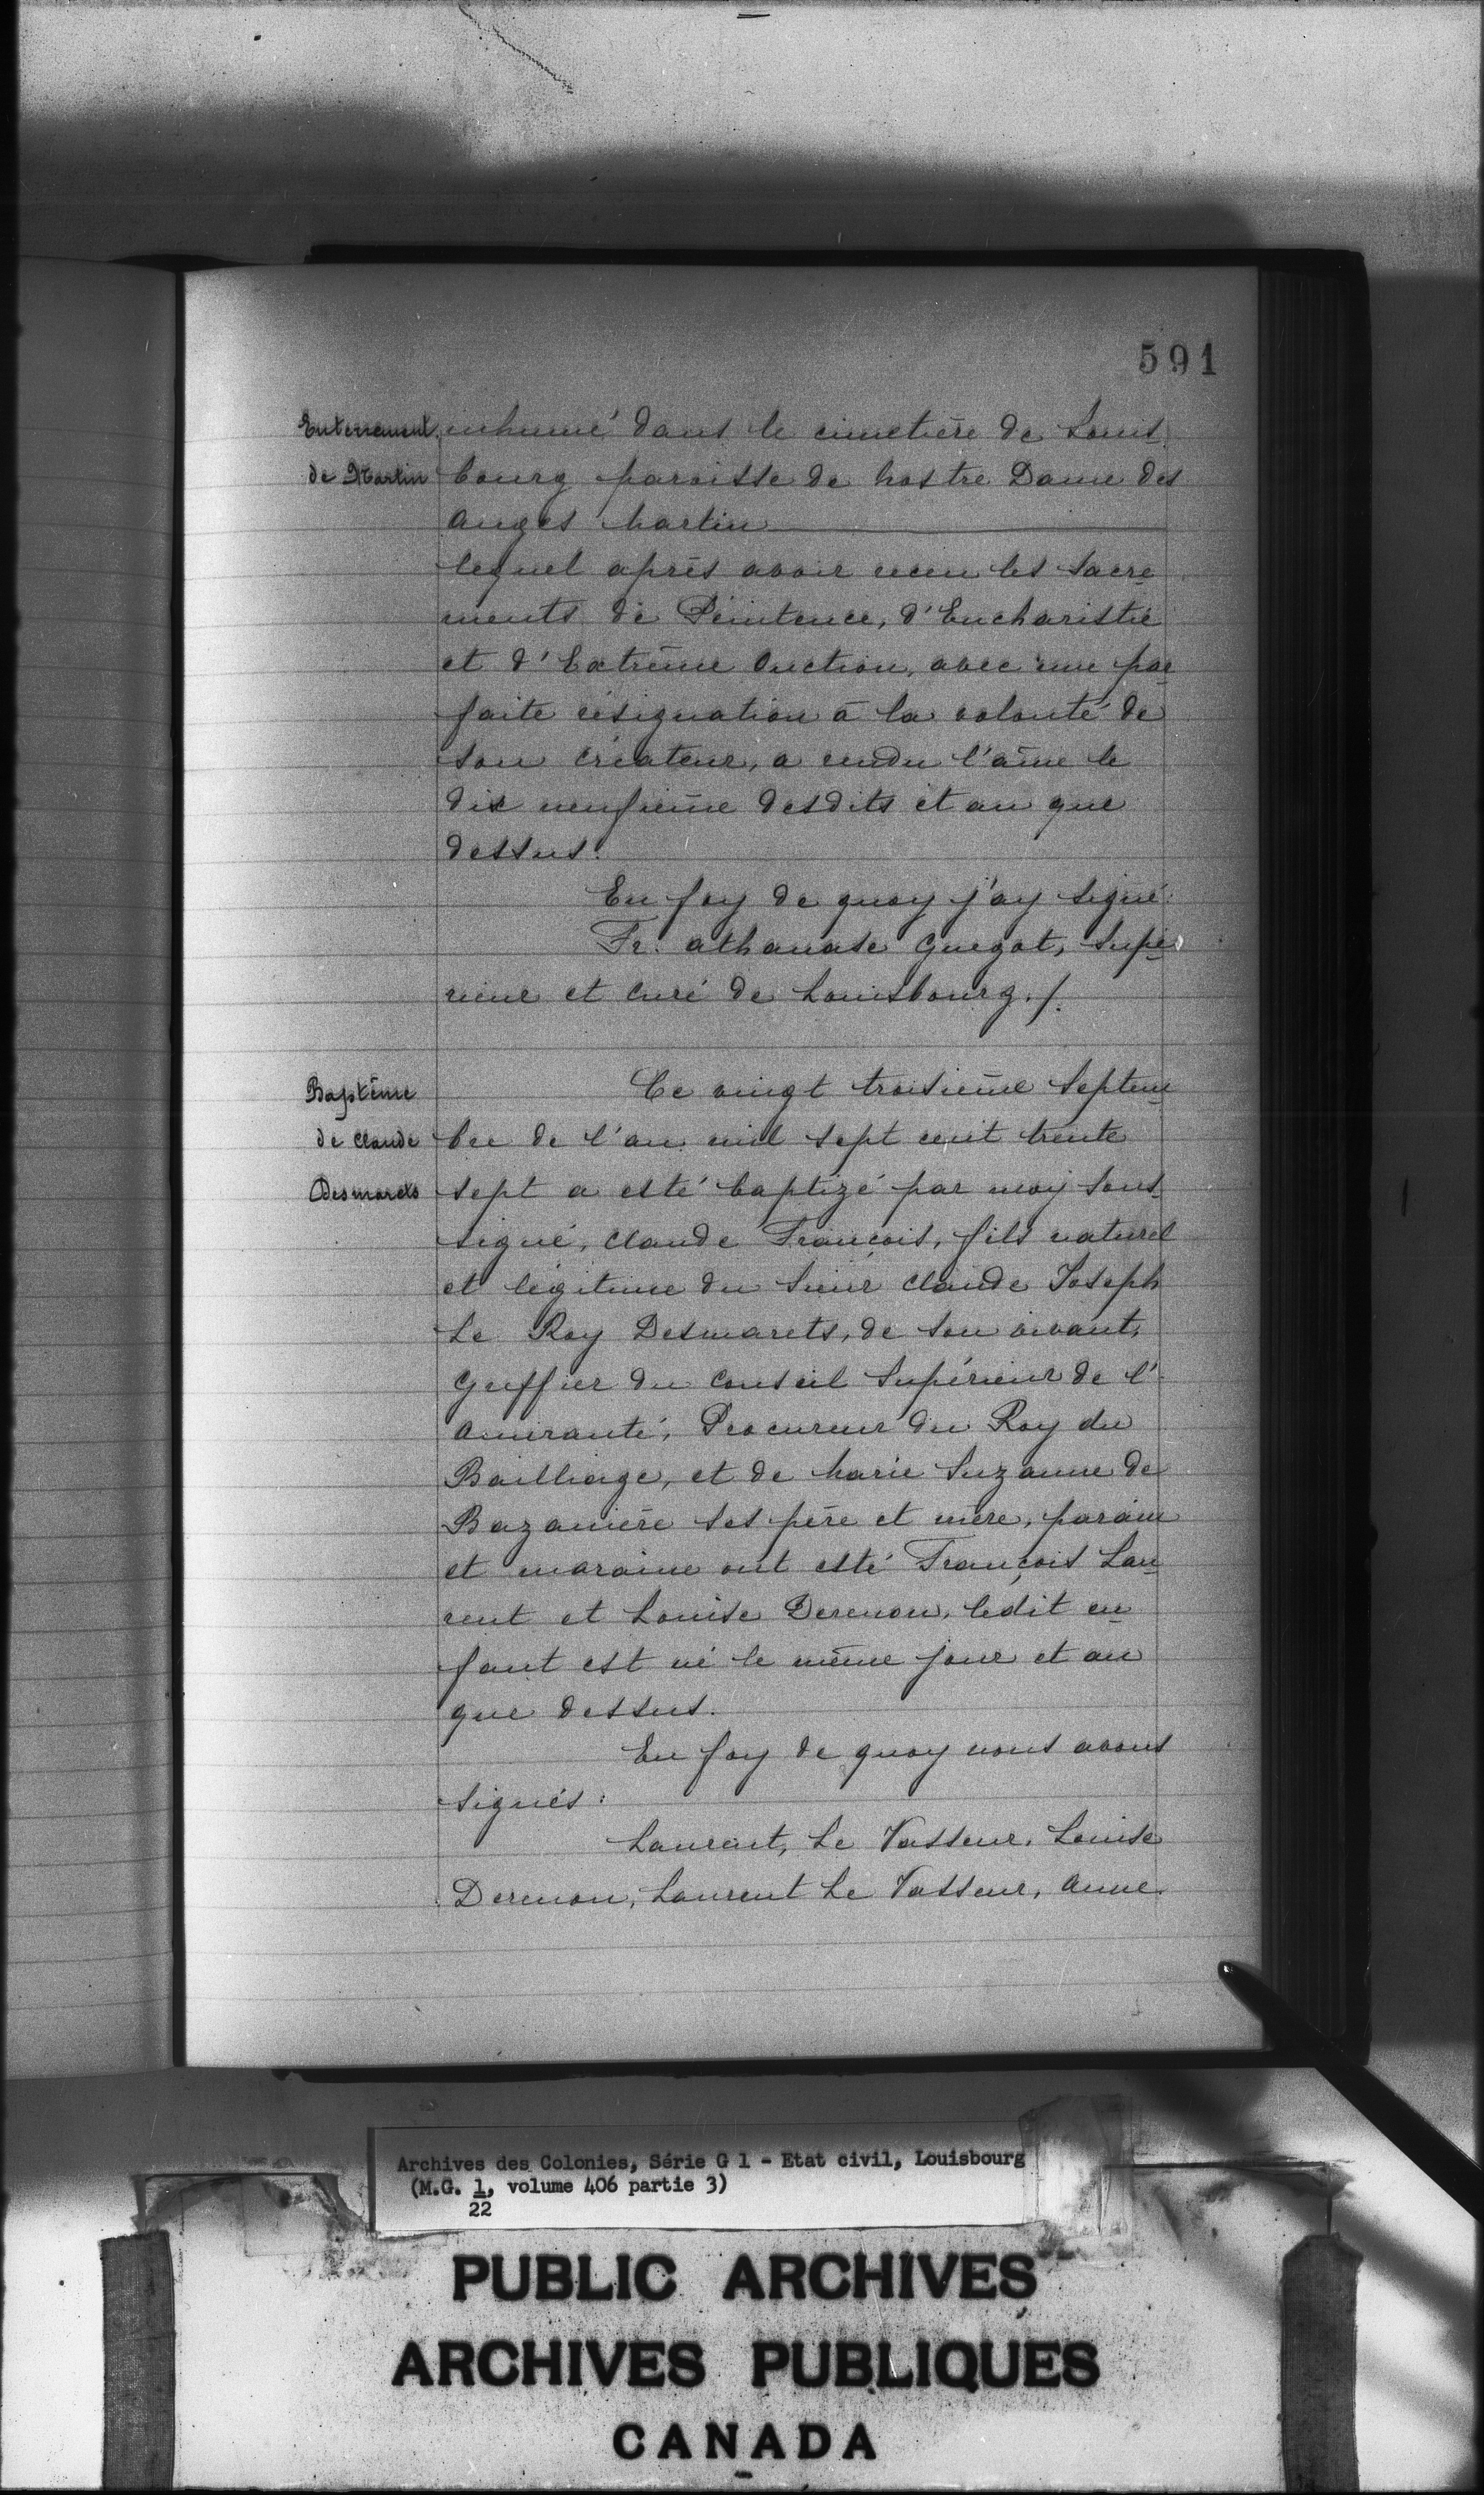 591
Enterrement inhumé dans le cimetière de Louis-
de Martin bourg paroisse de Nostre Dame des
Anges Martin
lequel après avoir receu les Sacre-
ments de Pénitence, d'Eucharistie
et d'Extrême Onction, avec une par-
faite résignation à la volonté de
son Créateur, a rendu l'âme le
dix neufième desdits et an que
dessus.
En foy de quoy j'ay signé:
Fr. Athanase Guegot, Supé-
rieur et Curé de Louisbourg./.
Baptême Ce vingt troisième Septem-
de Claude bre de l'an mil sept cent trente
Desmarets sept a esté baptizé par moy sous-
signé, Claude François, fils naturel
et légitime du Sieur Claude Joseph
Le Roy Desmarets, de son vivant,
Greffier du Conseil Supérieur de l'
Amirauté, Procureur du Roy du
Bailliage, et de Marie Suzanne de
Bazanière ses père et mère, parain
et maraine ont esté François Lau-
rent et Louise Derenon, ledit en-
fant est né le même jour et an
que dessus.
En foy de quoy nous avons
signés:
Laurent, Le Vasseur, Louise
Derenon, Laurent Le Vasseur, Anne
Archives des Colonies, Série G 1 - Etat civil, Louisbourg
(M.G. 1, volume 406 partie 3)
22
PUBLIC ARCHIVES
ARCHIVES PUBLIQUES
CANADA